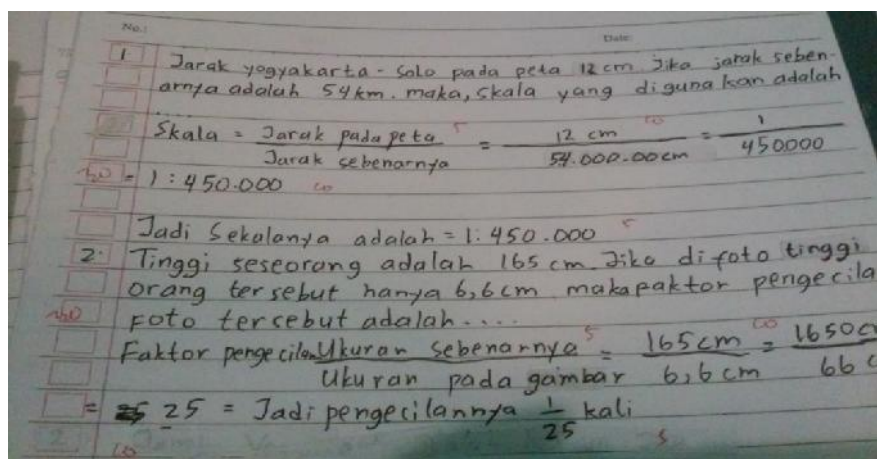 No.: Date:
1. Jarak yogyakarta - Solo pada peta 12 cm Jika jarak seben-
arnya adalah 54 km. maka, skala yang diguna kan adalah
Skala = Jarak pada peta / Jarak sebenarnya = 12 cm / 54.000.00 cm = 1 / 450000
= 1 : 450.000
Jadi Sekalanya adalah = 1: 450.000
2. Tinggi seseorang adalah 165 cm. Jika di foto tinggi
orang ter sebut hanya 6,6 cm makapaktor pengecila
Foto tercebut adalah....
Faktor pengecilan Ukuran sebenarnya / Ukuran pada gambar = 165 cm / 6,6 cm = 1650 c / 66 c
= 25 = Jadi pengecilannya 1/25 kali